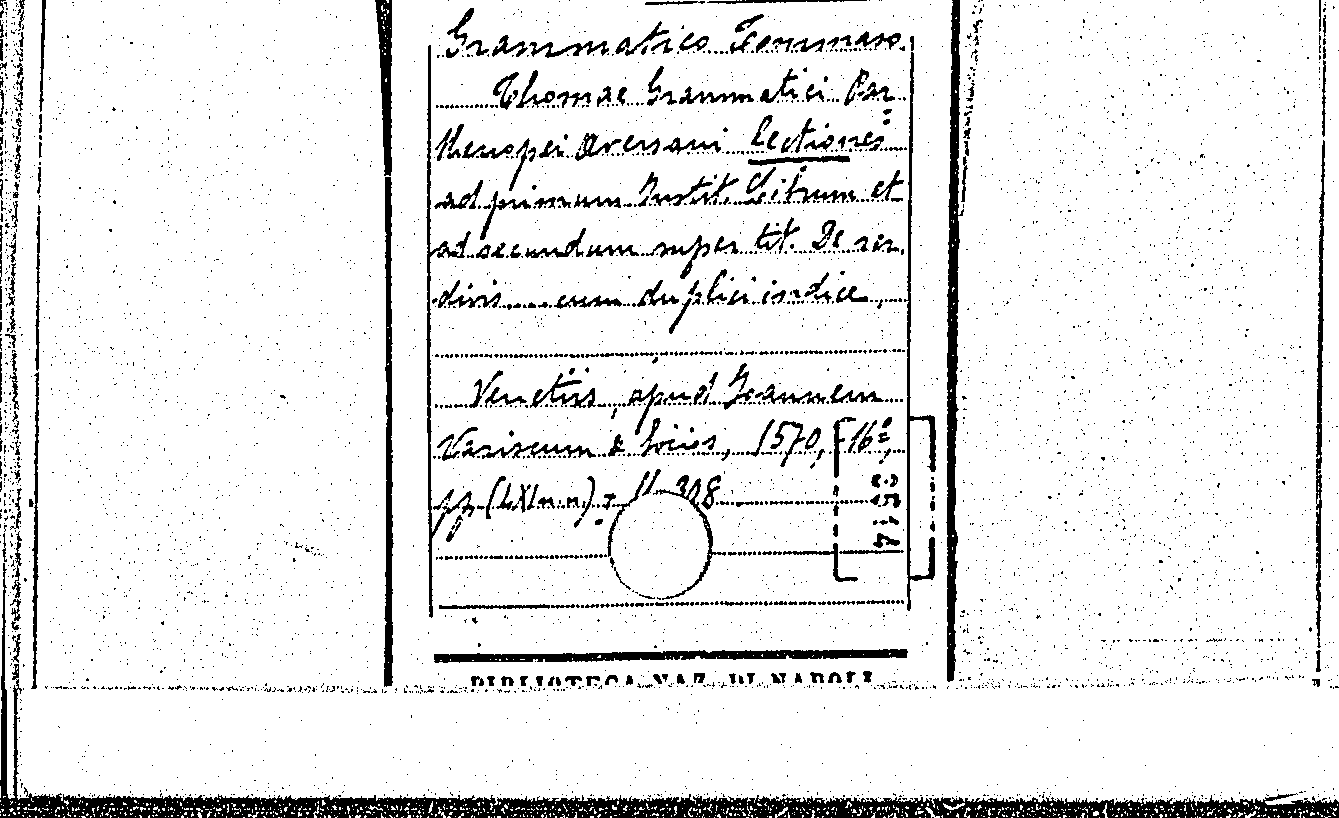 Grammatico Tommaso.
Thomae Grammatici Par=
thenopei Aversani Lectiones
ad primum Instit. Librum et
ad secundum super tit. De rer.
divis.... cum duplici indice,
Venetiis, apud Joannem
Variscum & socios, 1570, 16°,
pp. (LXI n.n.) +
BIBLIOTECA NAZ. DI NAPOLI